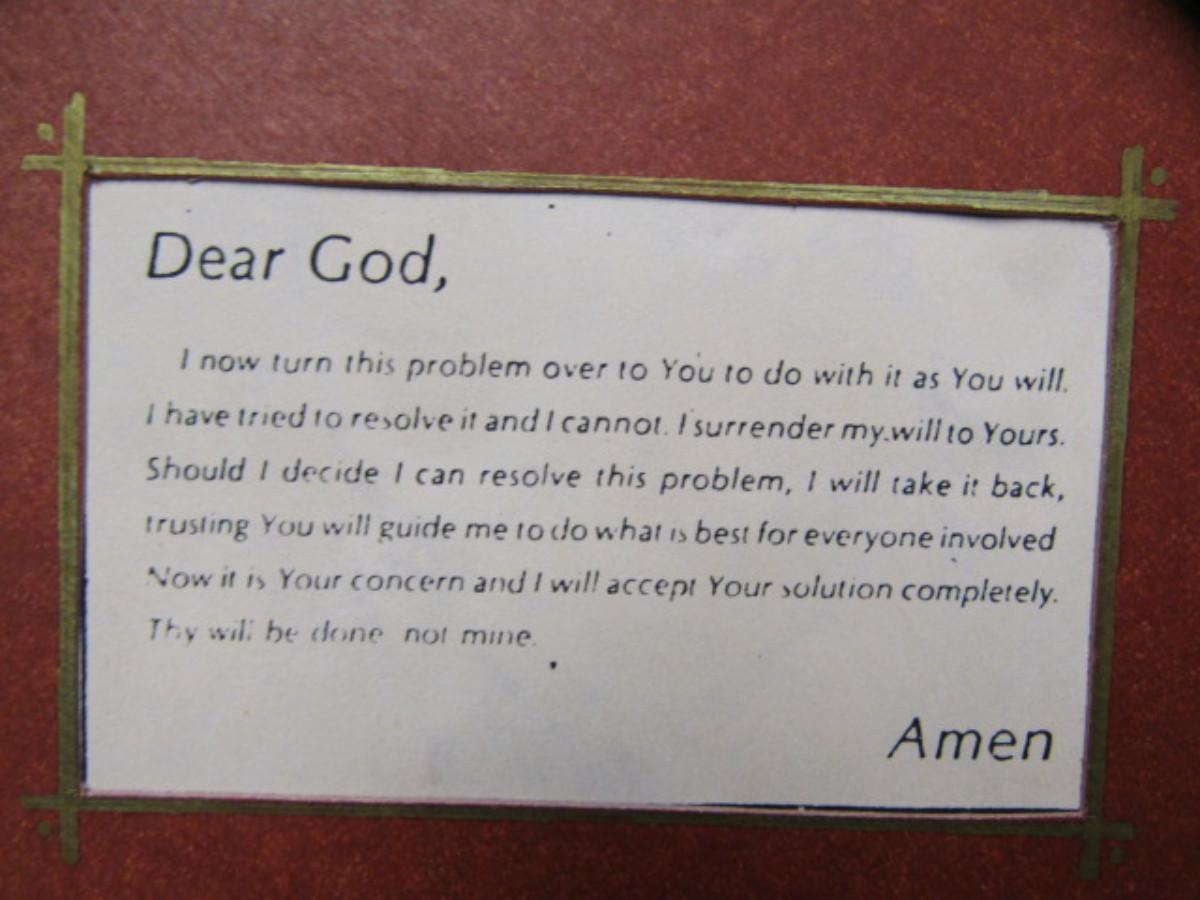 Dear God,
I now turn this problem over to You to do with it as You will.
I have tried to resolve it and I cannot. I surrender my will to Yours.
Should I decide I can resolve this problem, I will take it back,
trusting You will guide me to do what is best for everyone involved
Now it is Your concern and I will accept Your solution completely.
Thy will be done not mine.
Amen